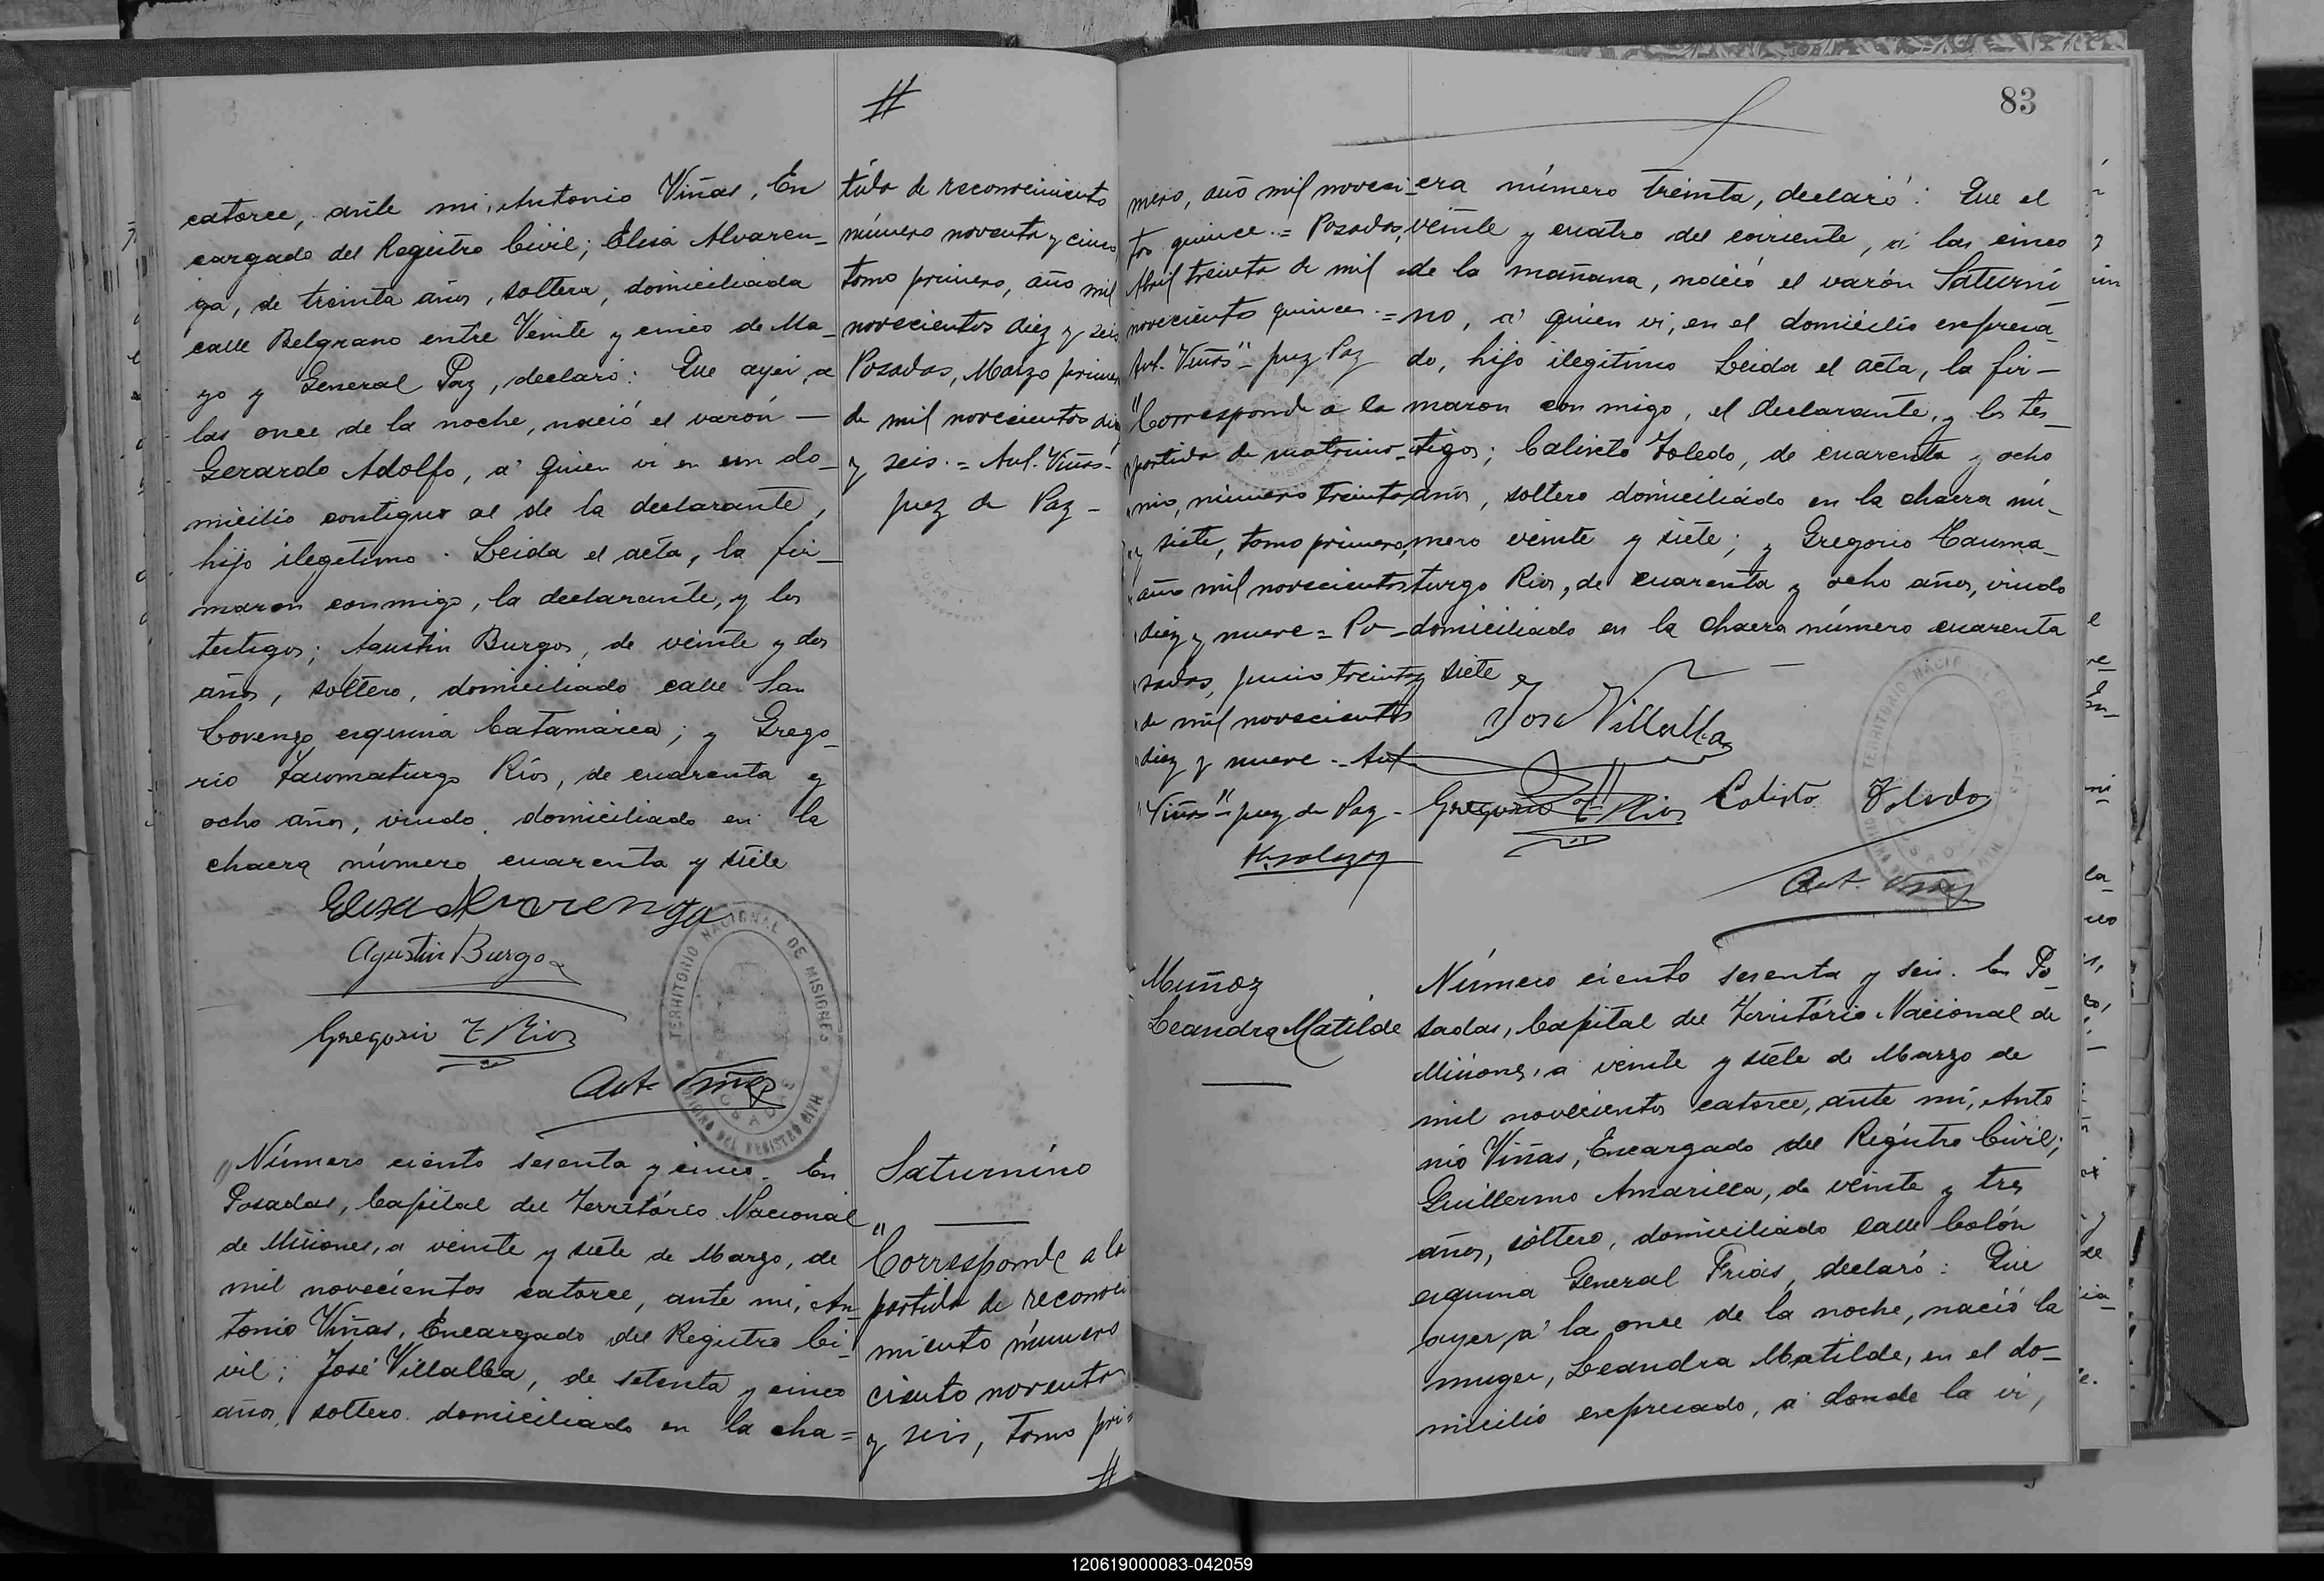 #
catorce, ante mi, Antonio Viñas, En
cargado del Registro Civil; Elisa Alvaren-
ga, de treinta años, soltera, domiciliada
calle Belgrano entre Veinte y cinco de Ma-
yo y General Paz, declaró: Que ayer, a
las once de la noche, nació el varón —
Gerardo Adolfo, a' quien vi en un do-
micilio contiguo al de la declarante,
hijo ilegitimo. Leida el acta, la fir-
maron conmigo, la declarante, y los
testigos; Agustin Burgos, de veinte y dos
años, soltero, domiciliado calle San
Lorenzo esquina Catamarca; y Grego-
rio Taumaturgo Ríos, de cuarenta y
ocho años, viudo, domiciliado en la
chacra número cuarenta y siete
Elisa Alvarenga
Agustin Burgos
Gregorio T Rios
Ant. Viñas
TERRITORIO NACIONAL DE MISIONES
OFICINA DEL REGISTRO CIVIL
POSADAS
tida de reconocimiento
número noventa y cinco
tomo primero, año mil
novecientos diez y seis
Posadas, Marzo primero
de mil novecientos diez
y seis. = Ant. Viñas-
juez de Paz -
Número ciento sesenta y cinco. En
Posadas, Capital del Territorio Nacional
de Misiones, a veinte y siete de Marzo, de
mil novecientos catorce, ante mi, An-
tonio Viñas, Encargado del Registro Ci-
vil; José Villalba, de setenta y cinco
años, soltero, domiciliado en la cha=
Saturnino
"Corresponde a la
partida de reconoci
miento número
ciento noventa
y seis, tomo pri=
#
83
mero, año mil novecien-
tos quince. = Posadas,
Abril treinta de mil
novecientos quince. =
Ant. Viñas" juez Paz
"Corresponde a la
"partida de matrimo-
"nio, número treinta
"y siete, tomo primero,
"año mil novecientos
"diez y nueve = Po-
"sadas, junio treinta
"de mil novecientos
"diez y nueve - Ant
"Viñas" juez de Paz -
era número treinta, declaró: Que el
veinte y cuatro del corriente, a' las cinco
de la mañana, nació el varón Saturni-
no, a' quien vi, en el domicilio expresa-
do, hijo ilegitimo Leida el acta, la fir-
maron con migo, el declarante, y los tes-
tigos; Calixto Toledo, de cuarenta y ocho
años, soltero domiciliado en la chacra nú-
mero veinte y siete; y Gregorio Tauma-
turgo Rios, de cuarenta y ocho años, viudo
domiciliado en la chacra número cuarenta
y siete
José Villalba
Gregorio T Rios
Calisto Toledo
Ant. Viñas
Muñoz
Leandra Matilde
Número ciento sesenta y seis. En Po-
sadas, Capital del Territorio Nacional de
Misiones, a veinte y siete de Marzo de
mil novecientos catorce, ante mi, Anto
nio Viñas, Encargado del Registro Civil;
Guillermo Amarilla, de veinte y tres
años, soltero, domiciliado calle Colón
esquina General Frias, declaró: Que
ayer, a' la once de la noche, nació la
muger, Leandra Matilde, en el do-
micilio expresado, a donde la vi,
120619000083-042059